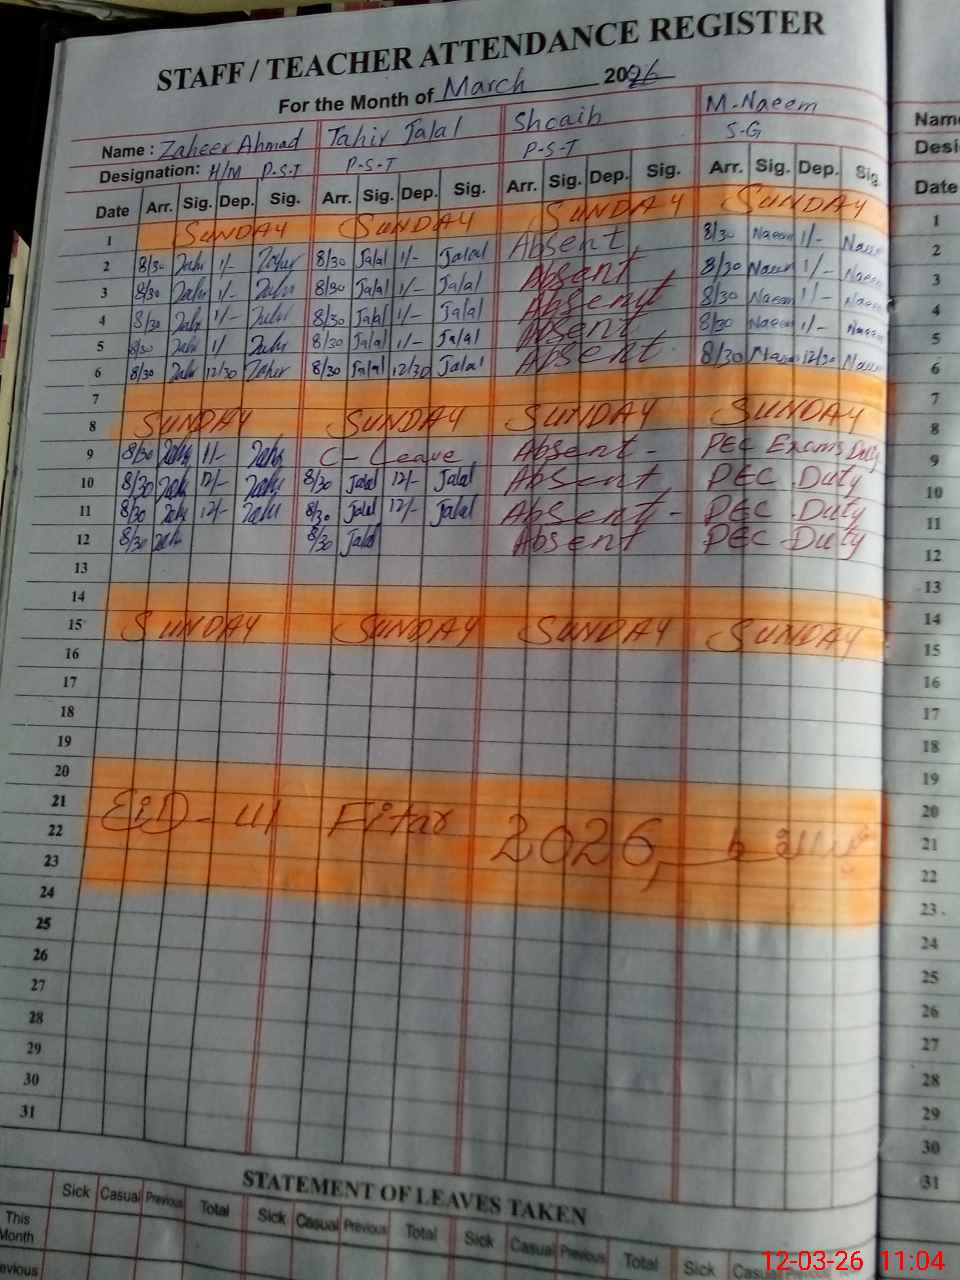 STAFF / TEACHER ATTENDANCE REGISTER
For the Month of March 2026
Name : Zaheer Ahmad Tahir Jalal Shoaib M. Naeem Name
Designation: H/M P.S.T P-S-T P-S-T S-G Desi
Date Arr. Sig. Dep. Sig. Arr. Sig. Dep. Sig. Arr. Sig. Dep. Sig. Arr. Sig. Dep. Sig. Date
1 SUNDAY SUNDAY SUNDAY SUNDAY 1
2 8/30 1/- 8/30 Jalal 1/- Jalal Absent 8/30 Naeem 1/- Naeem 2
3 8/30 1/- 8/30 Jalal 1/- Jalal Absent 8/30 Naeem 1/- Naeem 3
4 8/30 1/- 8/30 Jalal 1/- Jalal Absent 8/30 Naeem 1/- Naeem 4
5 8/30 1/ 8/30 Jalal 1/- Jalal Absent 8/30 Naeem 1/- Naeem 5
6 8/30 12/30 Zaher 8/30 Jalal 12/30 Jalal Absent 8/30 Naeem 12/30 Naeem 6
7 7
8 SUNDAY SUNDAY SUNDAY SUNDAY 8
9 8/30 1/- C-Leave Absent - PEC Exams Duty 9
10 8/30 12/- 8/30 Jalal 12/- Jalal Absent PEC Duty 10
11 8/30 12/- 8/30 Jalal 12/- Jalal Absent - PEC Duty 11
12 8/30 8/30 Jalal Absent PEC Duty 12
13 13
14 14
15 SUNDAY SUNDAY SUNDAY SUNDAY 15
16 16
17 17
18 18
19 19
20 20
21 EiD-ul Fitar 2026, 21
22 22
23 23
24 24
25 25
26 26
27 27
28 28
29 29
30 30
31 31
STATEMENT OF LEAVES TAKEN
Sick Casual Previous Total Sick Casual Previous Total Sick Casual Previous Total Sick Casual
This Month
evious
12-03-26 11:04